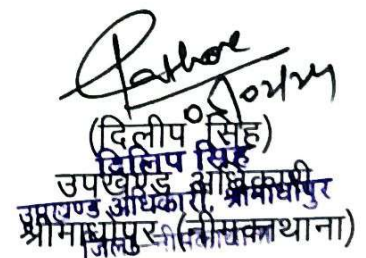 Rathore
(दिलीप सिंह)
दिलिप सिंह
उपखण्ड अधिकारी
उपखण्ड अधिकारी, श्रीमाधोपुर
श्रीमाधोपुर (नीमकाथाना)
जिला-नीमकाथाना